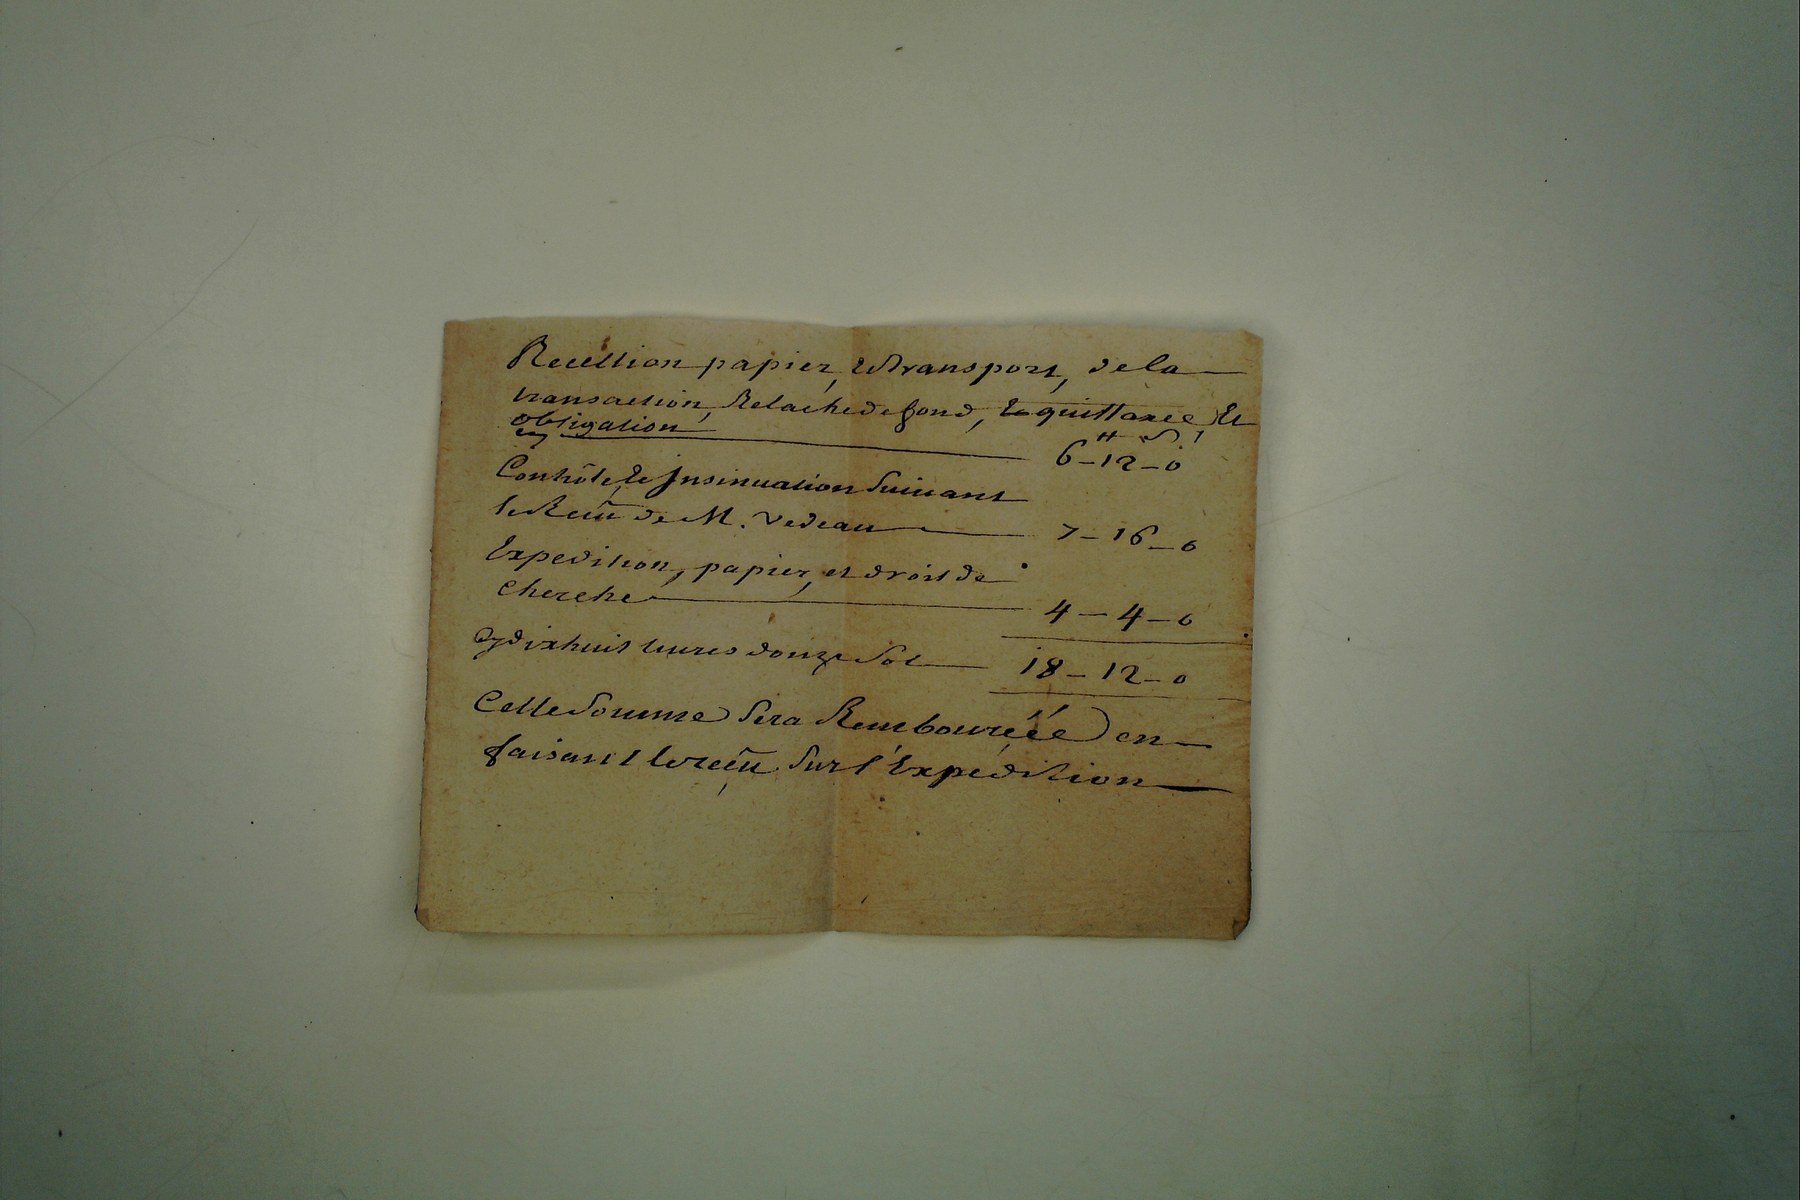 Recettion papier, et transport, de la
transaction, Relache de fond, et quittance, Et
obligation
6 # - 12 s - 0
Contrôle, et Insinuation Suivant
le Recu de M. Vedeau 7 - 16 - 0
Expedition, papier, et droit de
cherche 4 - 4 - 0
Cy dix huit livres douze Sol 18 - 12 - 0
Cette Somme Sera Rembourcéé en
faisant le reçu Sur l'Expédition